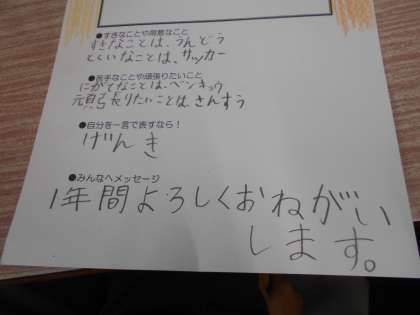 ●すきなことや得意なこと
すきなことは、うんどう
とくいなことは、サッカー
●苦手なことや頑張りたいこと
にがてなことは、ベンキョウ
頑張りたいことは、さんすう
●自分を一言で表すなら！
げんき
●みんなへメッセージ
1年間よろしくおねがい
します。